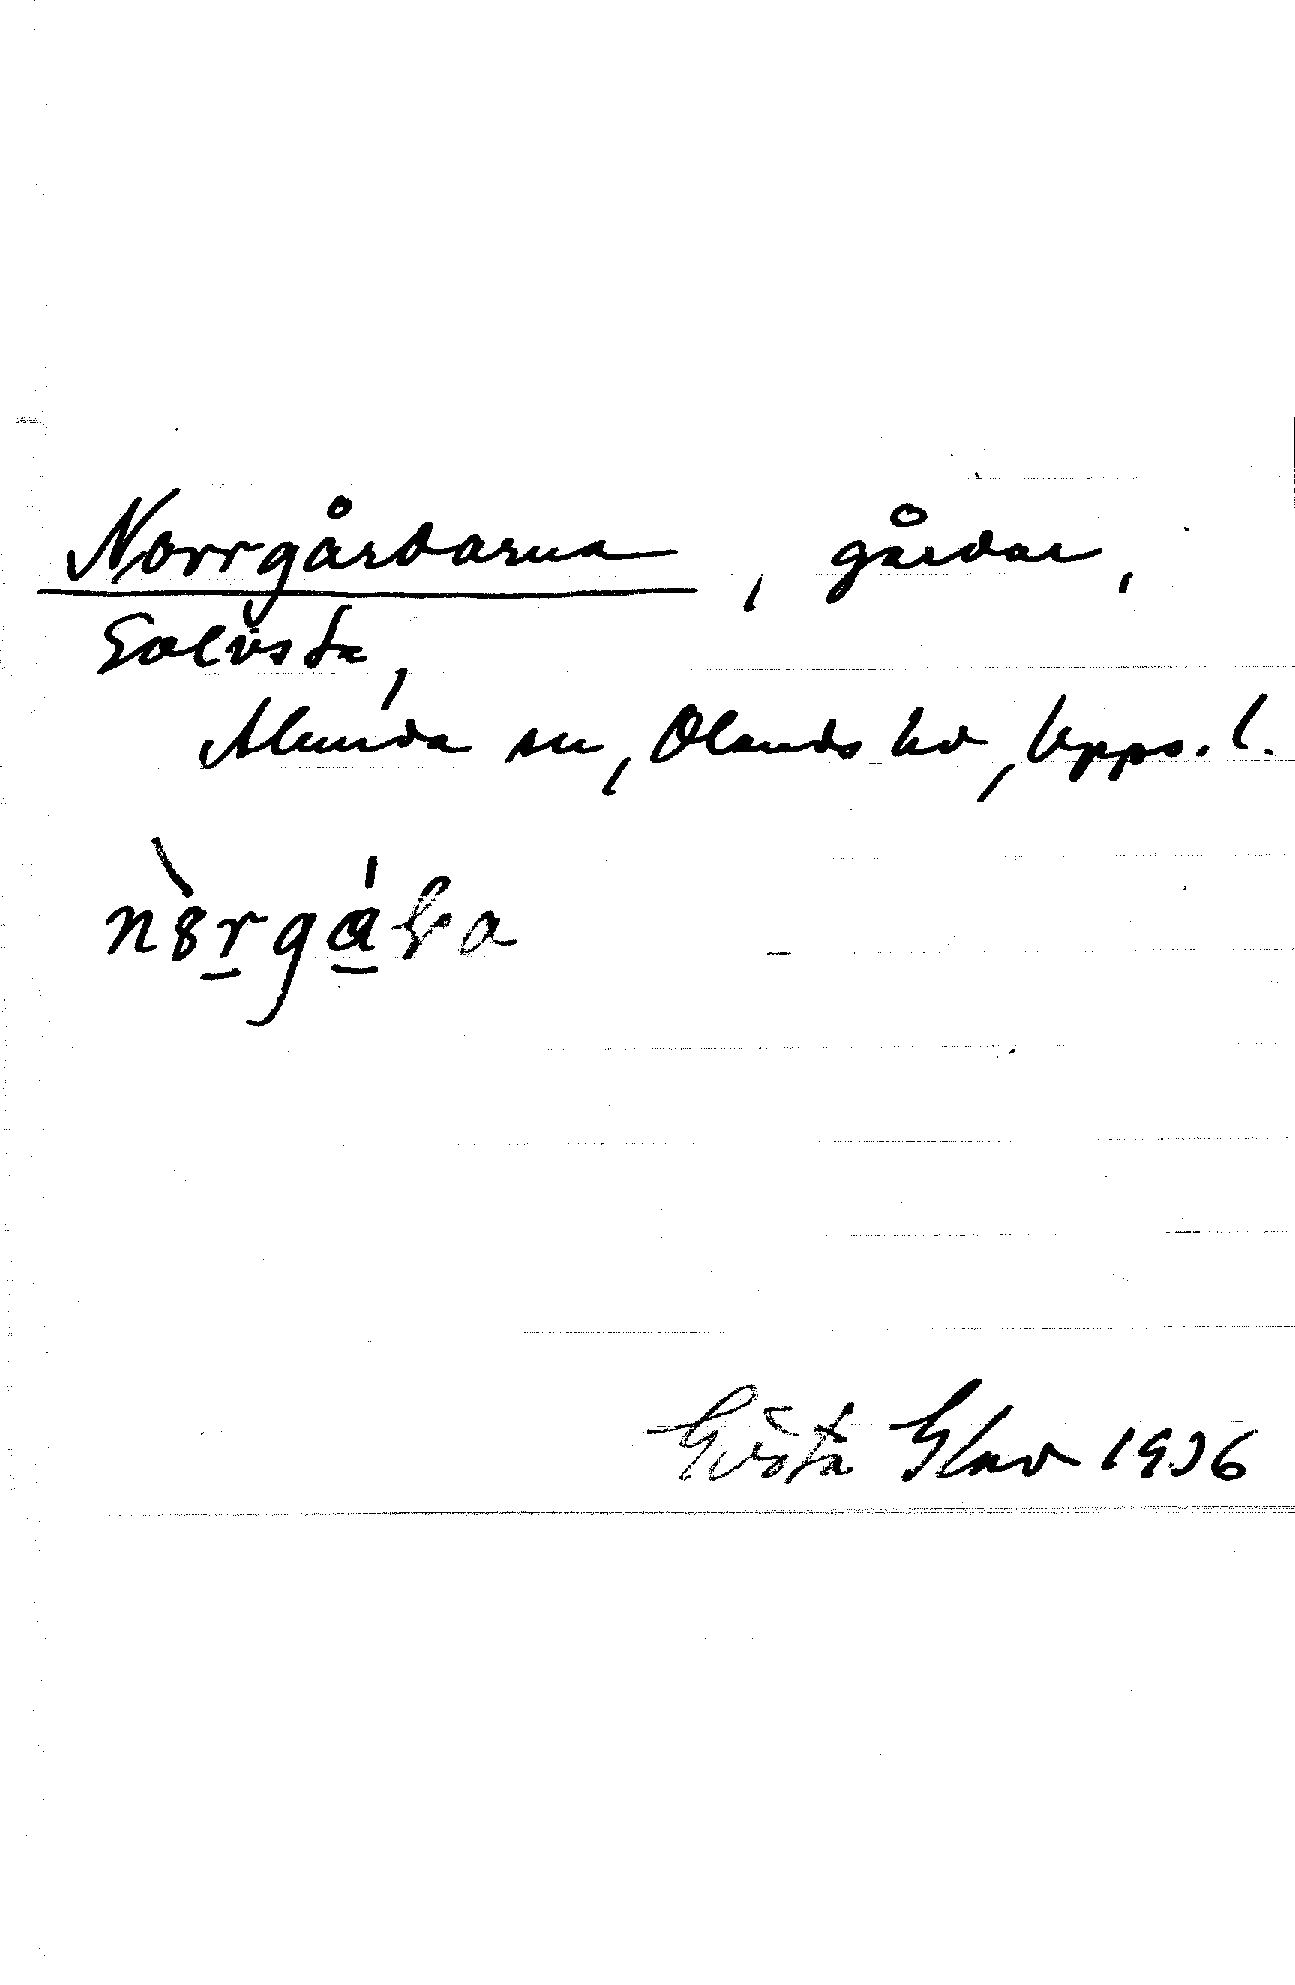 Norrgårdarna, gårdar,
Golvsta,
Alunda sn, Olands hd, Upps. l.
Gösta Glav 1936